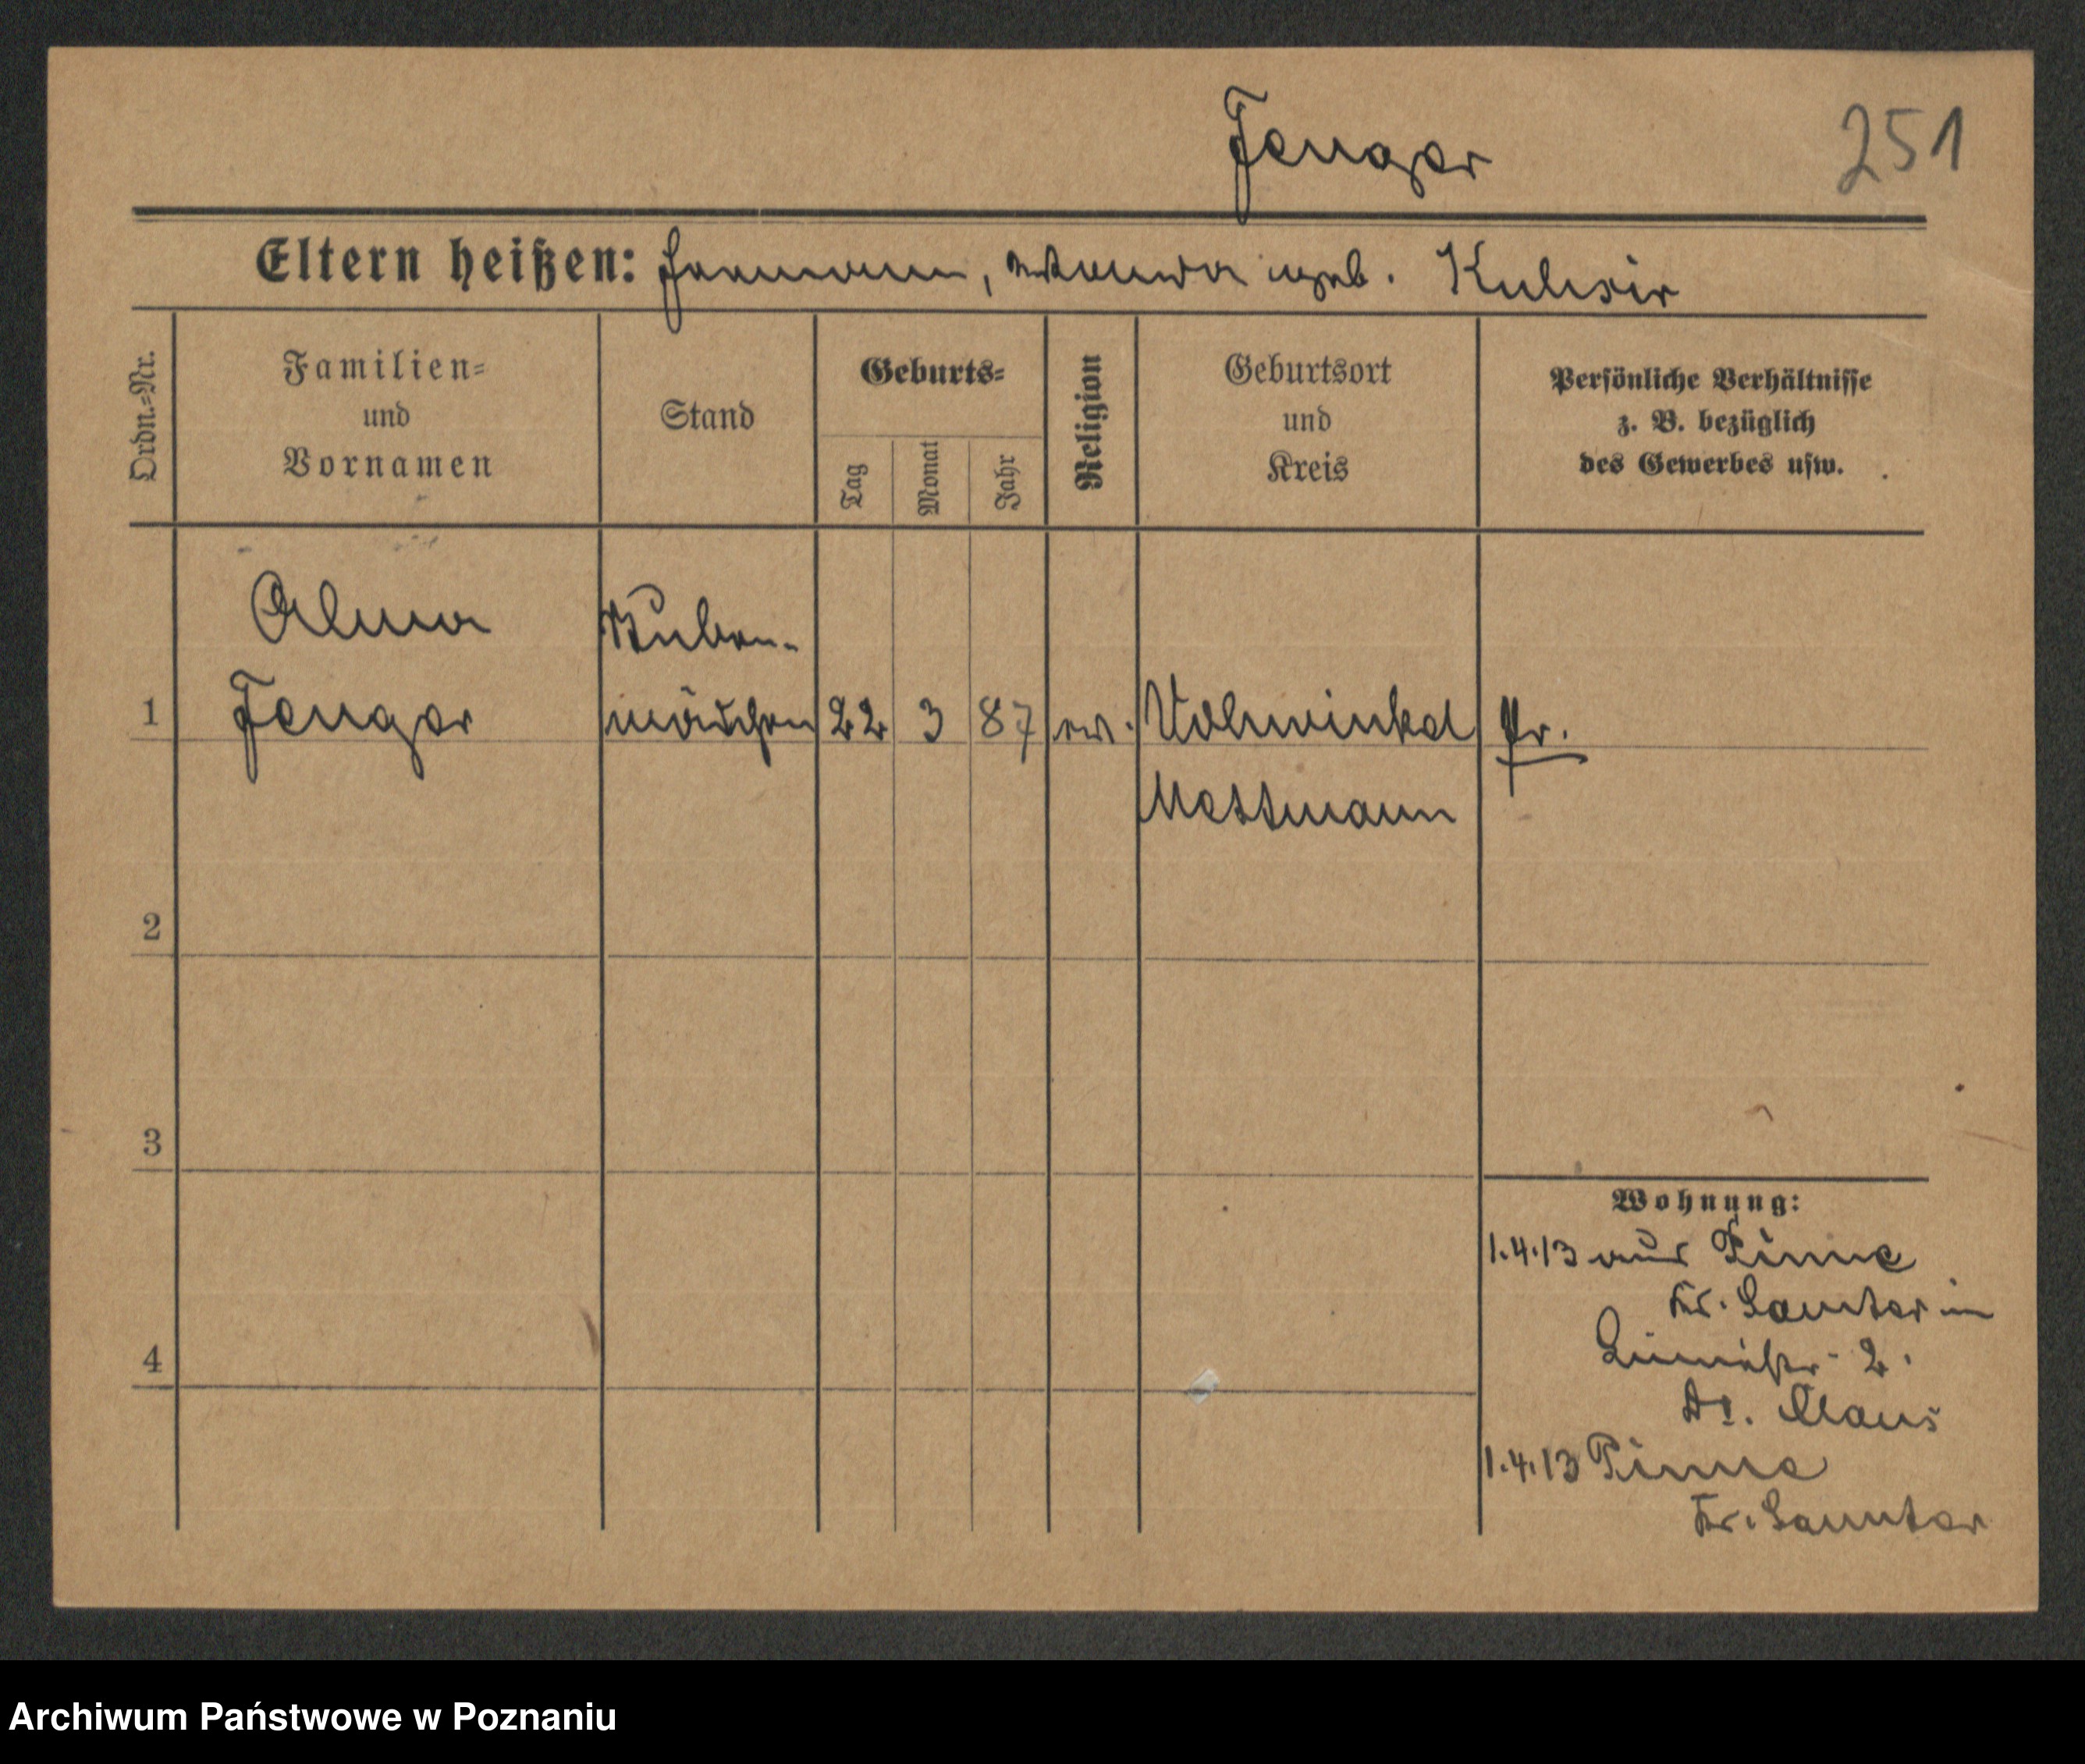 Fenger
251
Eltern heißen: Hermann, Wanda geb.
Ordn.=Nr.
Familien=
und
Vornamen
Stand
Geburts=
Tag
Monat
Jahr
Religion
Geburtsort
und
Kreis
Persönliche Verhältnisse
z. B. bezüglich
des Gewerbes usw.
Alma
Stuben-
1 Fenger mädchen 22 3 87 ev. Vohwinkel Pr.
Mettmann
2
3
Wohnung:
1.4.13 aus Pinne
Kr. Samter in
4
2.
Dr. Claus
1.4.13 Pinne
Kr. Samter
Archiwum Państwowe w Poznaniu